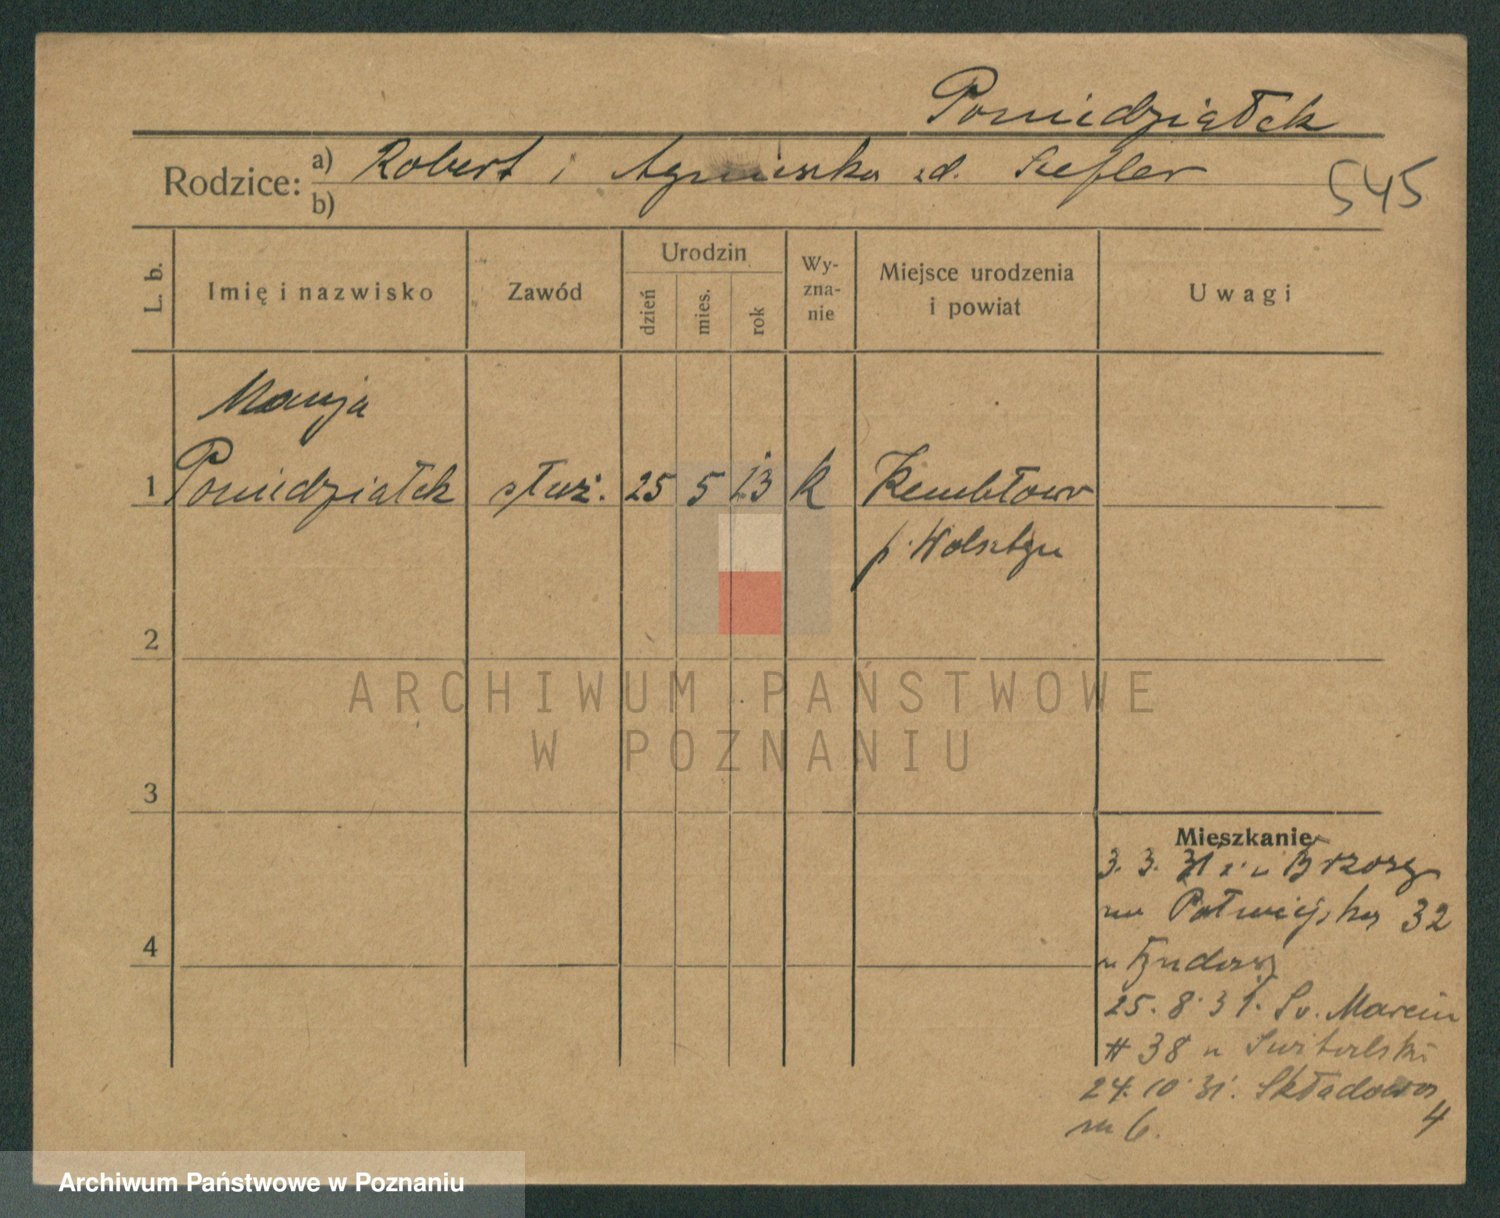 Poniedziałek
Rodzice: a) Robert i Agnieszka zd. Szefler
b)
545
L. b.
Imię i nazwisko
Zawód
Urodzin
dzień
mies.
rok
Wy-
zna-
nie
Miejsce urodzenia
i powiat
Uwagi
Marja
1 Poniedziałek służ. 25 5 13 k Rembłowo
p. Wolsztyn
2
3
4
ARCHIWUM PAŃSTWOWE
W POZNANIU
Mieszkanie
3. 3. 31 z Brzozy
Półwiejska 32
25. 8. 31. Św. Marcin
38 u Switalski
24. 10. 31. Składowa 4
m 6.
Archiwum Państwowe w Poznaniu